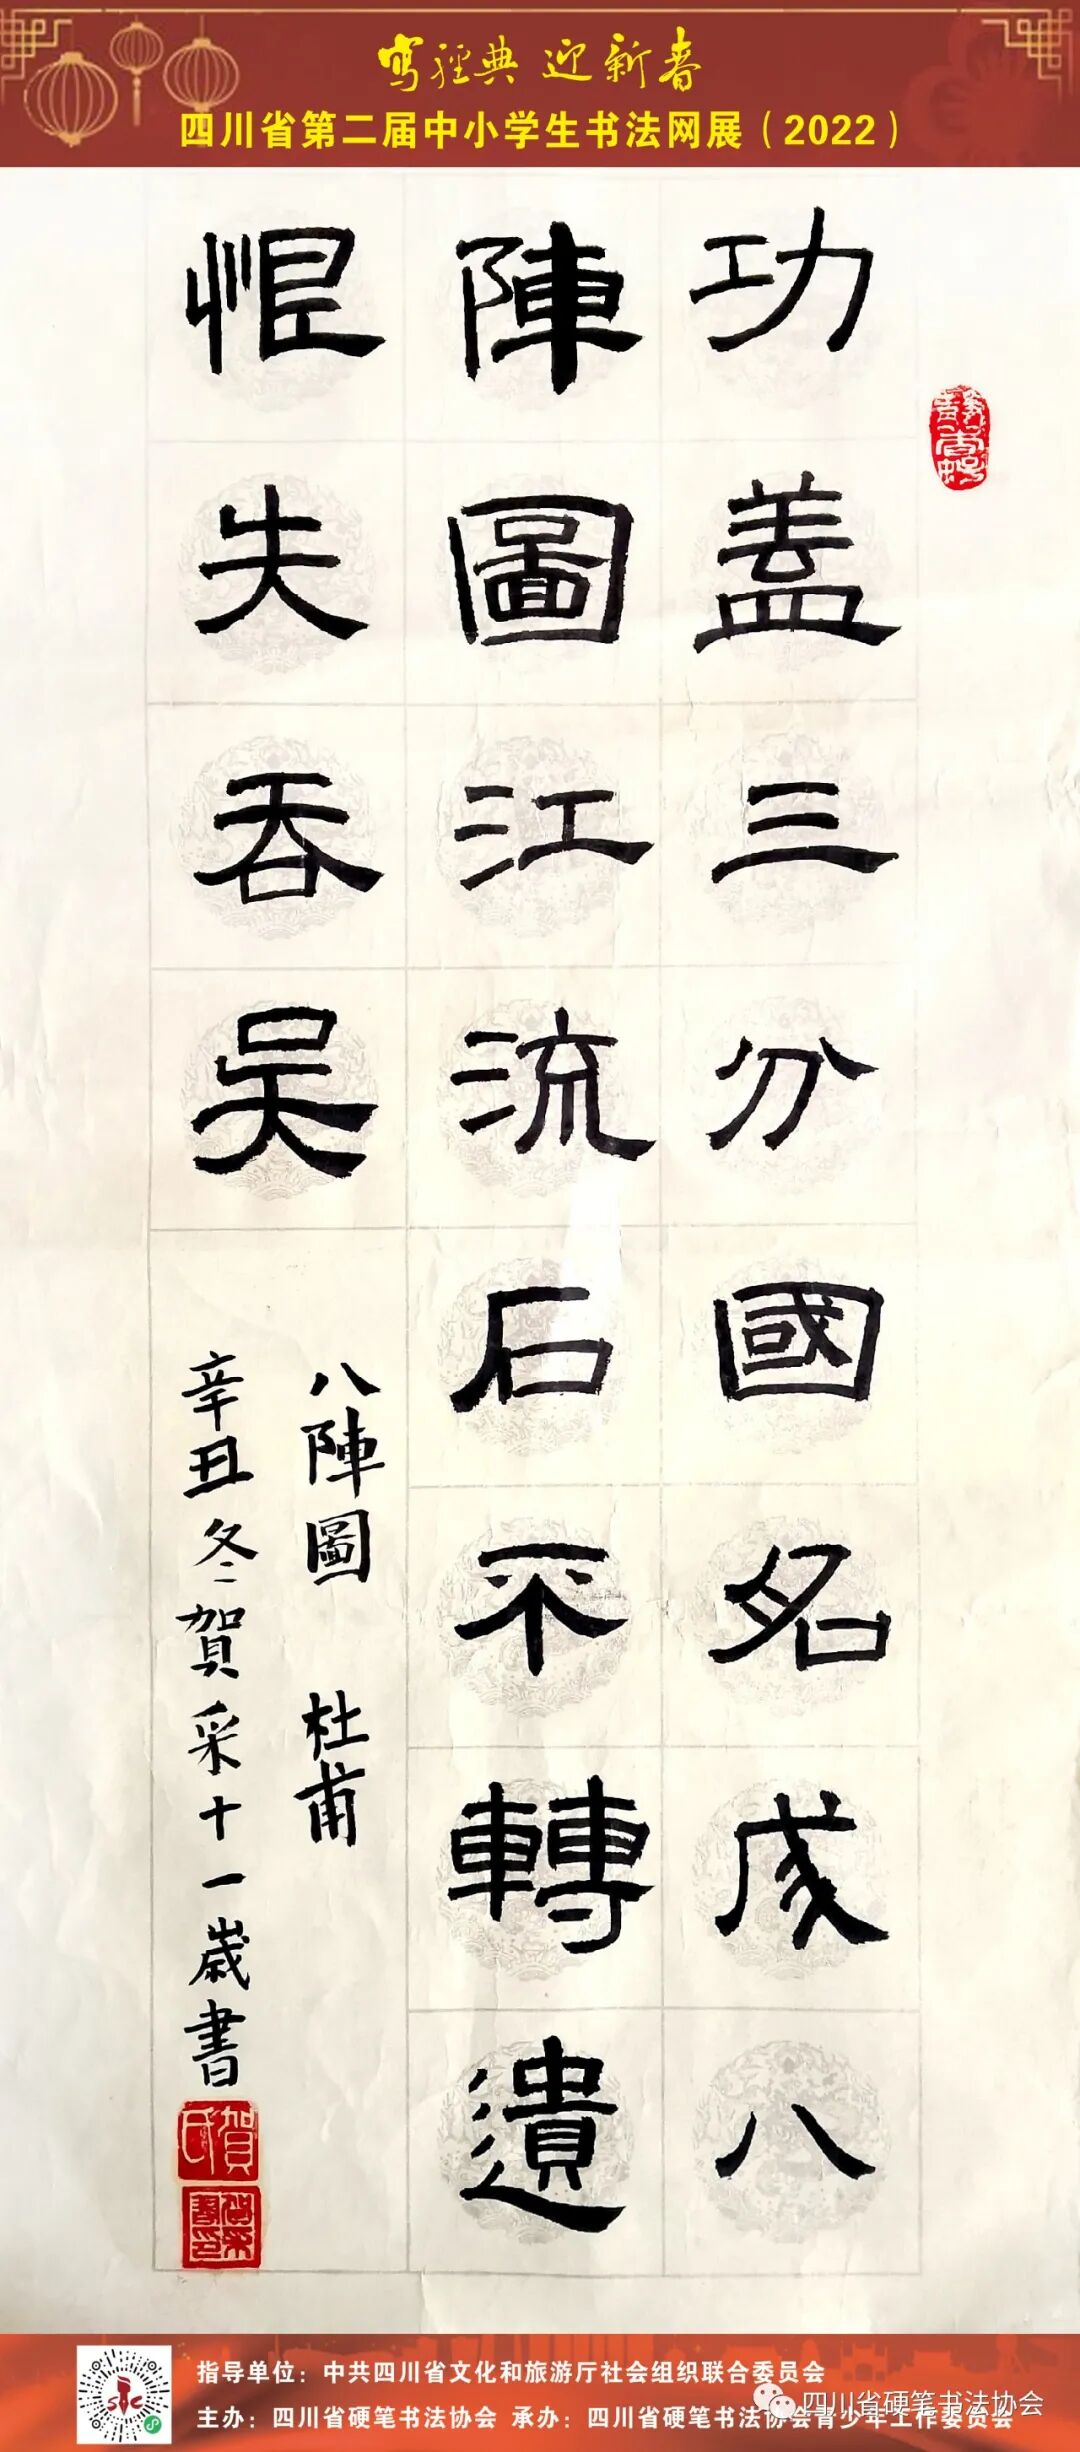 寫經典 迎新春
四川省第二届中小学生书法网展（2022）
功蓋三分國名成八
陣圖江流石不轉遺
恨失吞吳
八陣圖 杜甫
辛丑冬賀采十一歲書
賀氏
指导单位：中共四川省文化和旅游厅社会组织联合委员会
主办：四川省硬笔书法协会 承办：四川省硬笔书法协会青少年工作委员会
四川省硬笔书法协会